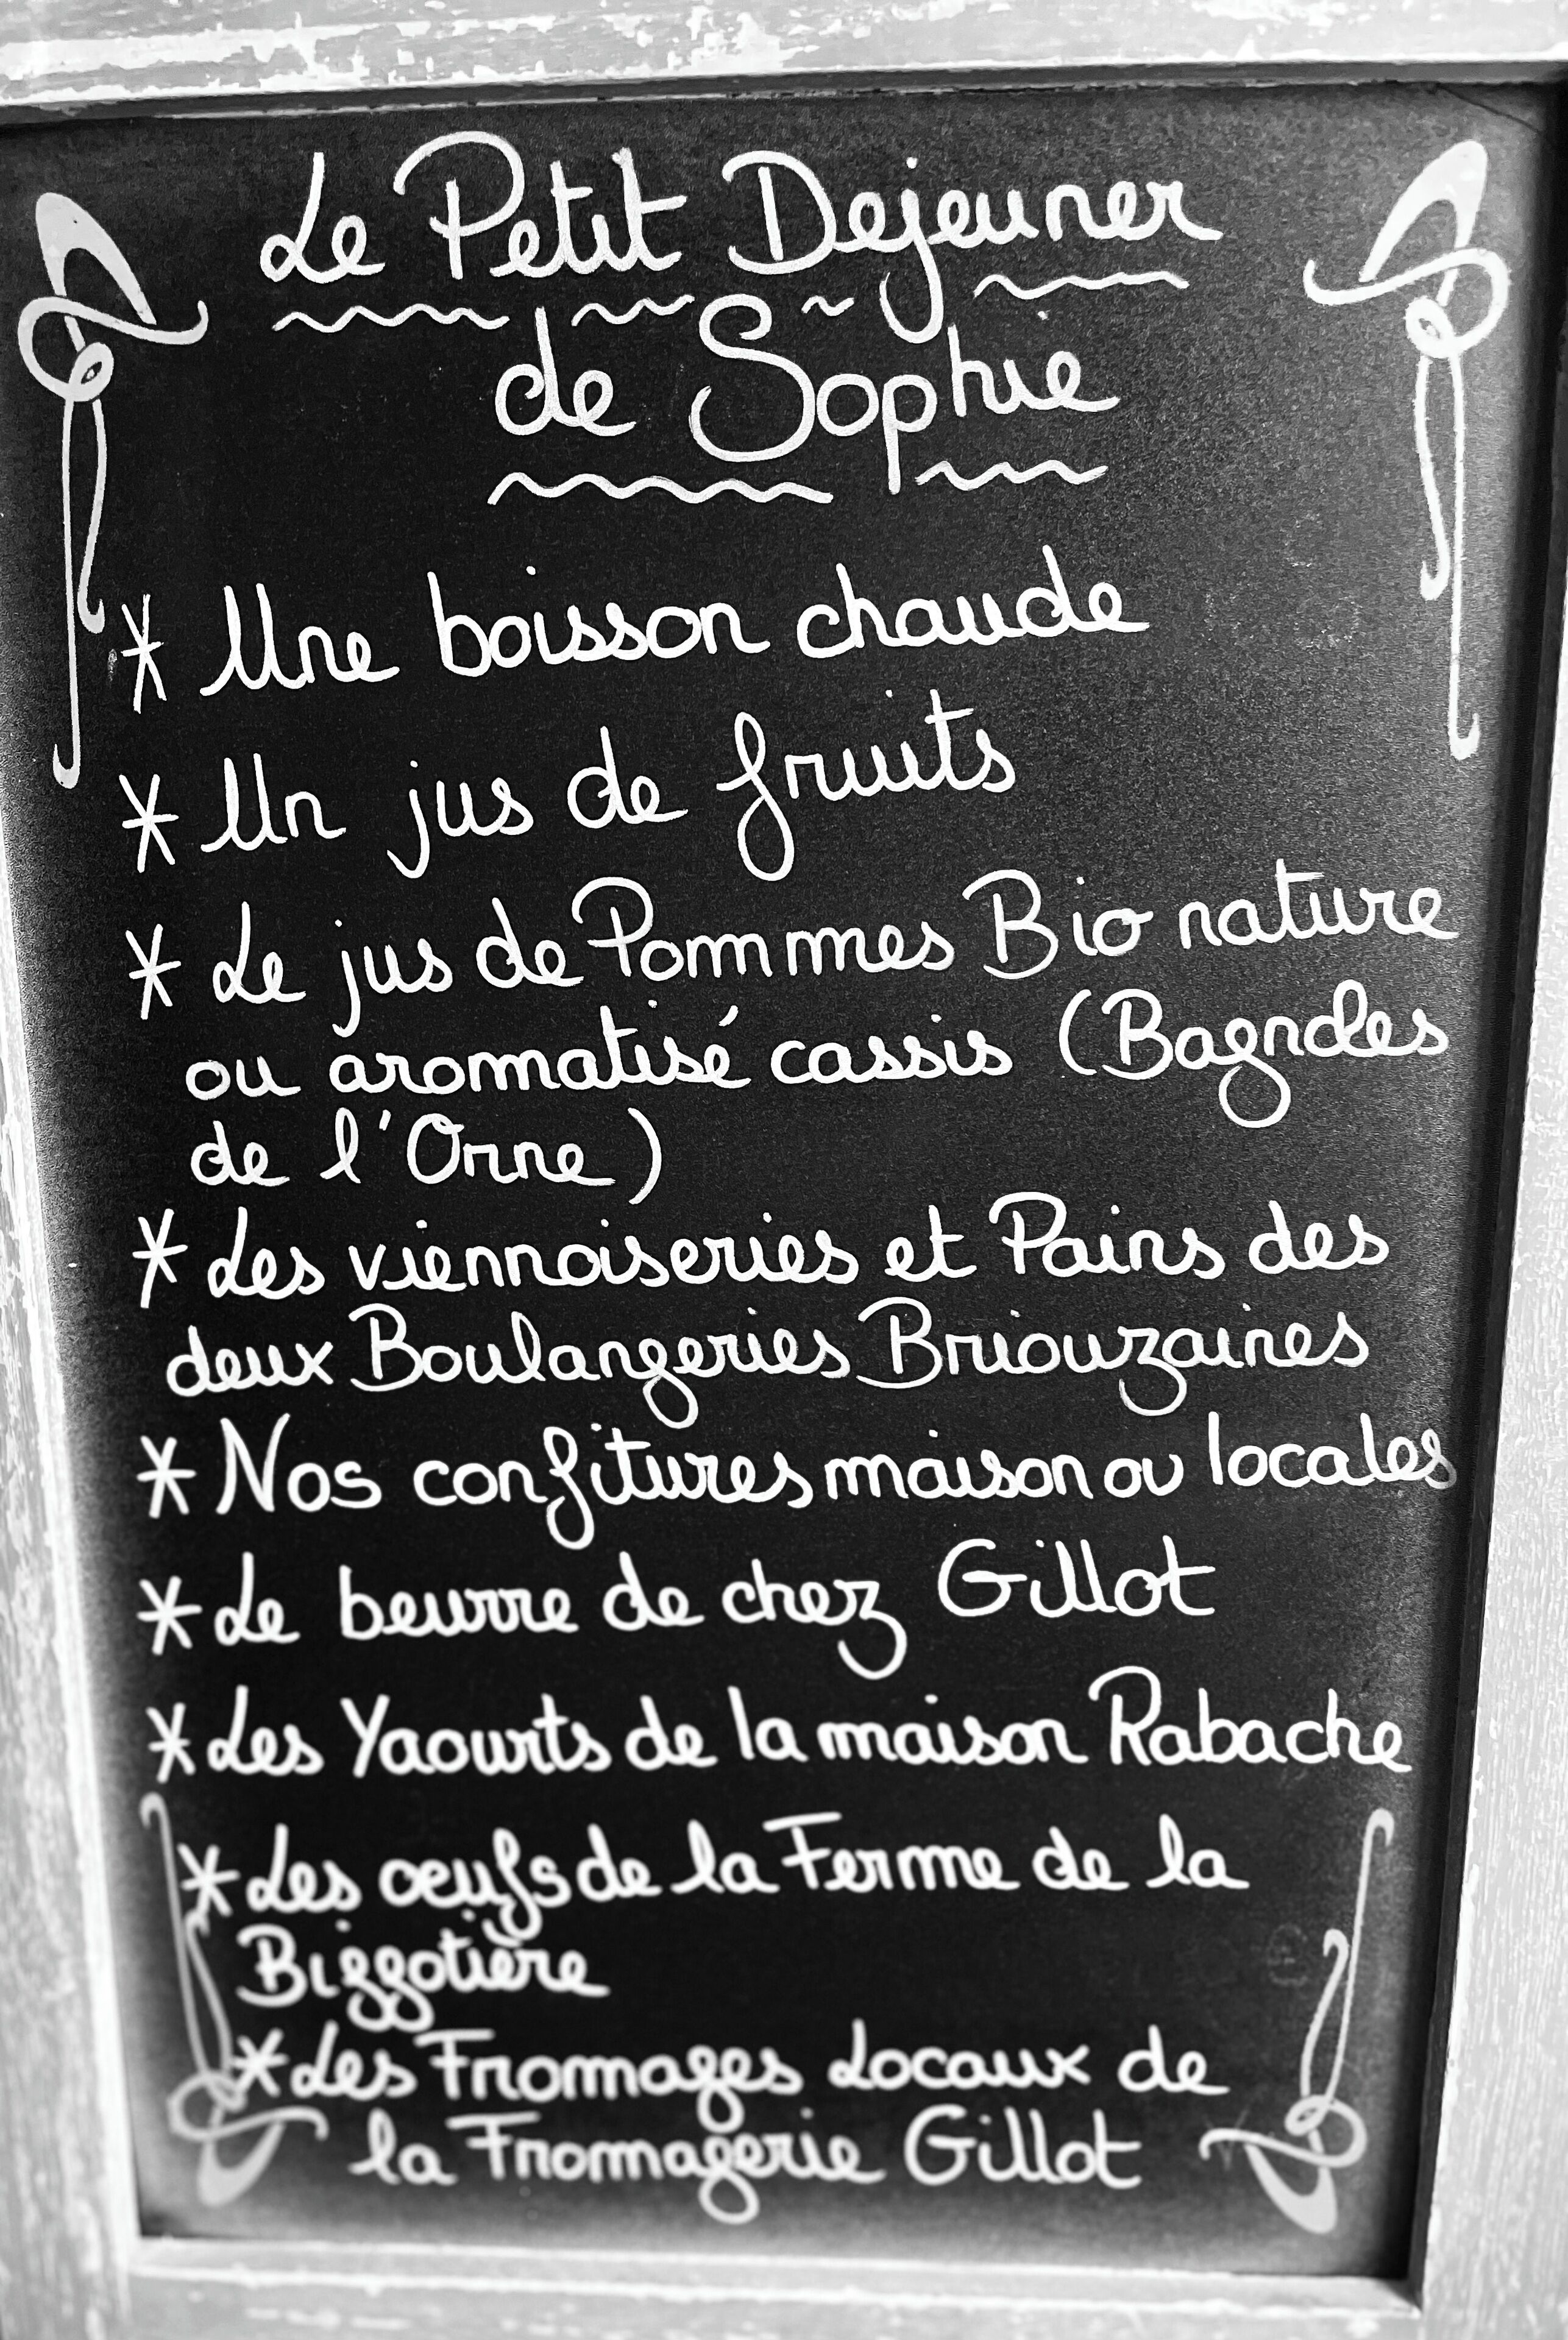 Le Petit Dejeuner
de Sophie
* Une boisson chaude
* Un jus de fruits
* Le jus de Pommes Bio nature
ou aromatisé cassis (Bagnoles
de l'Orne)
* Les viennoiseries et Pains des
deux Boulangeries Briouzaines
* Nos confitures maison ou locales
* Le beurre de chez Gillot
* Les Yaourts de la maison Rabache
* Les œufs de la Ferme de la
Bizgotière
* Les Fromages Locaux de
la Fromagerie Gillot